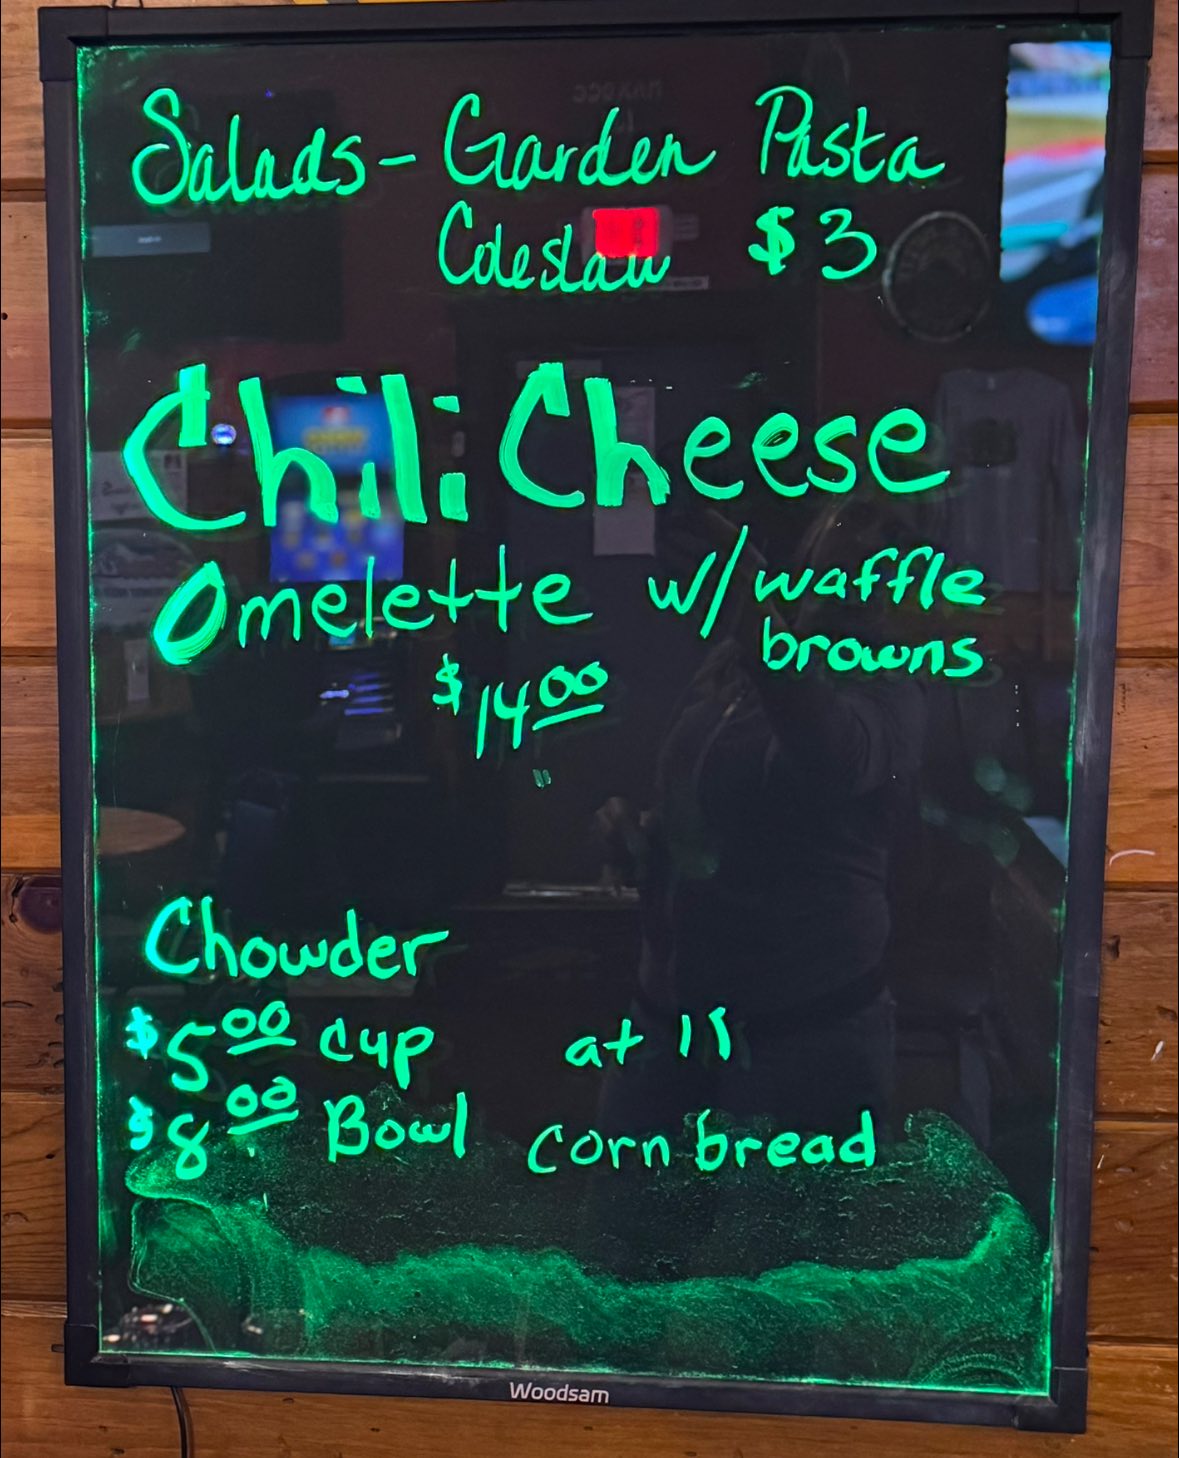 Salads - Garden Pasta
Coleslaw $3
Chili Cheese
Omelette w/ waffle
browns
$14.00
Chowder
$5.00 cup at 11
$8.00 Bowl corn bread
Woodsam